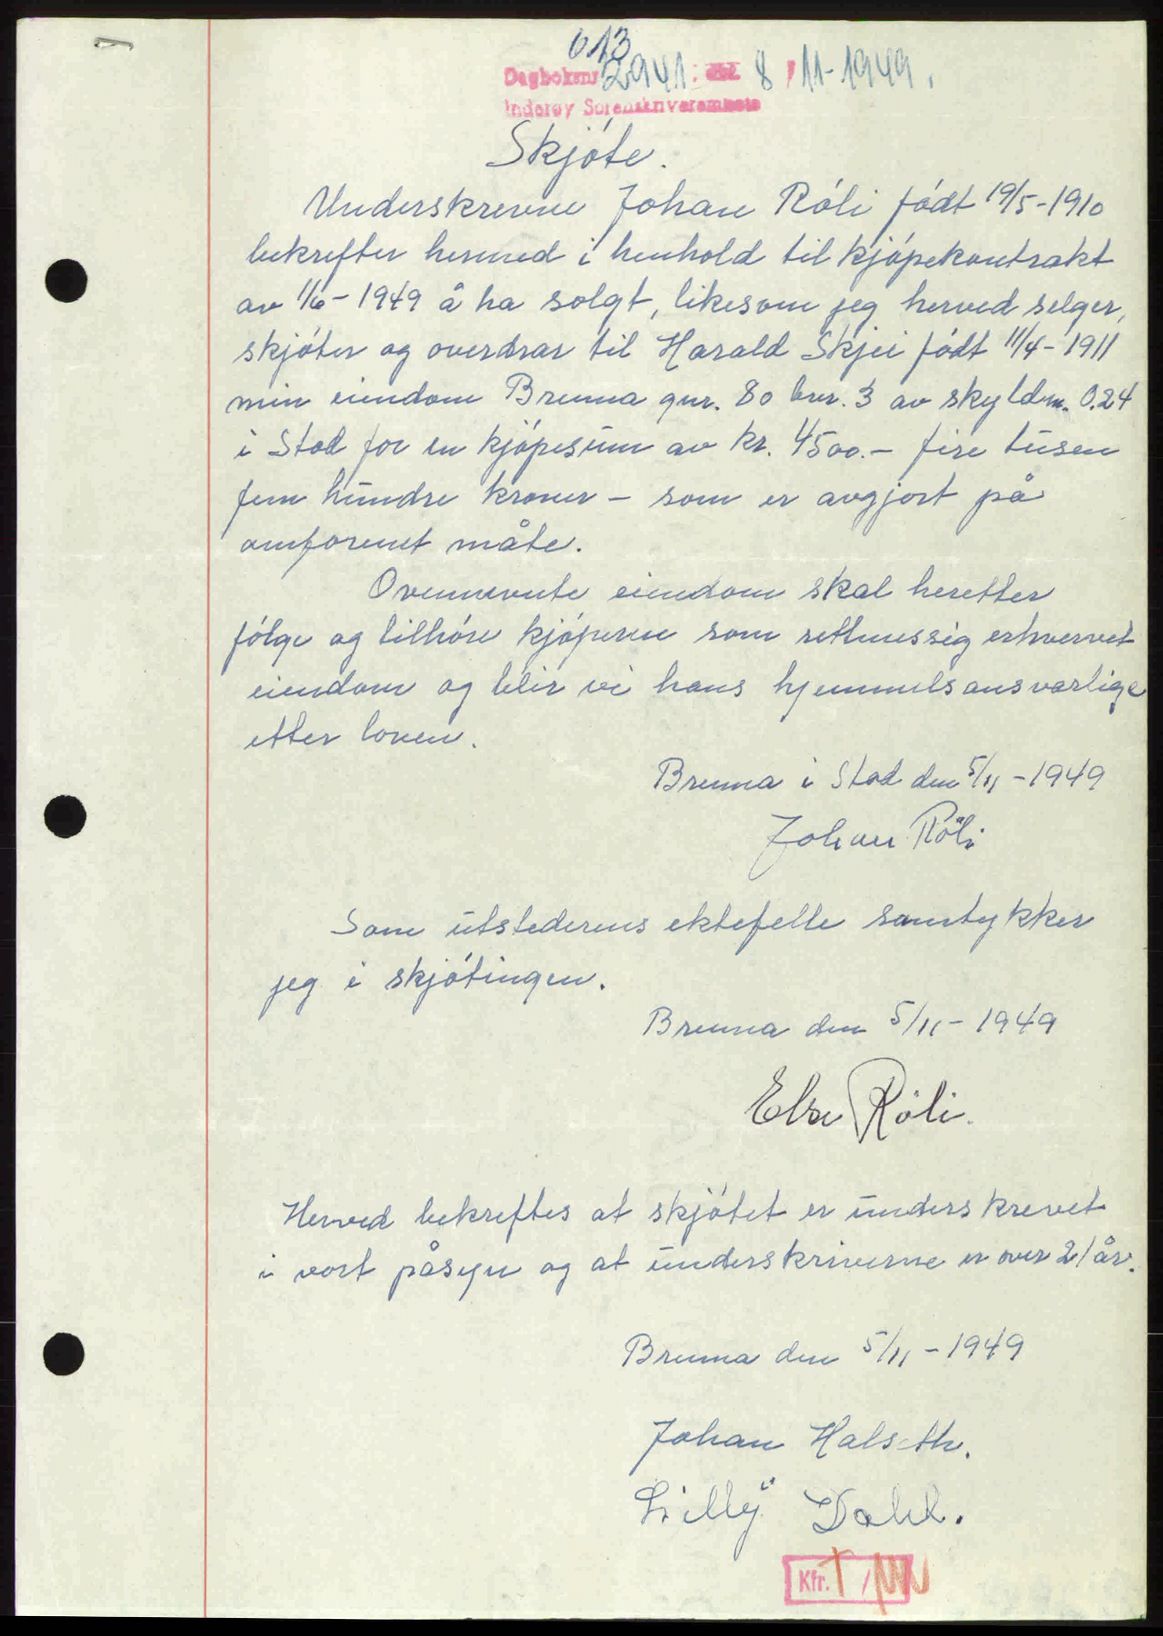 013
Dagboknr 2941. 8/11-1949.
Inderøy Sorenskriverembete
Skjóte.
Underskrevne Johan Róli fódt 19/5-1910
bekrefter hermed i henhold til kjópekontrakt
av 1/6-1949 å ha solgt, likesom jeg herved selger,
skjóter og overdrar til Harald Skjei fódt 11/4-1911
min eiendom Brenna gnr. 80 bnr. 3 av skyldm. 0.24
i Stod for en kjópesum av kr. 4500.- fire tusen
fem hundre kroner - som er avgjort på
omforenet måte.
Ovennevnte eiendom skal heretter
fólge og tilhóre kjóperen som rettmessig erhvervet
eiendom og blir vi hans hjemmelsansvarlige
etter loven.
Brenna i Stod den 5/11-1949
Johan Röli
Som utstederens ektefelle samtykker
jeg i skjótingen.
Brenna den 5/11-1949
Else Róli.
Herved bekreftes at skjótet er underskrevet
i vort påsyn og at underskriverne er over 21 år.
Brenna den 5/11-1949
Johan Halseth.
Lilly Dahl.
Kfr. T /